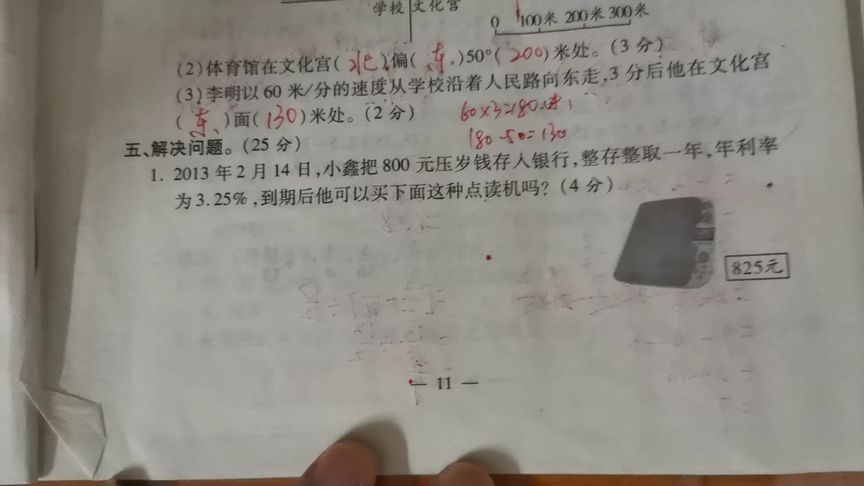 学校 文化宫
0 100米 200米 300米
(2)体育馆在文化宫(北)偏(东)50°(200)米处。(3分)
(3)李明以60米/分的速度从学校沿着人民路向东走,3分后他在文化宫
(东)面(130)米处。(2分)
60×3=180米
180-50=130
五、解决问题。(25分)
1. 2013年2月14日,小鑫把800元压岁钱存入银行,整存整取一年,年利率
为3.25%,到期后他可以买下面这种点读机吗?(4分)
825元
— 11 —